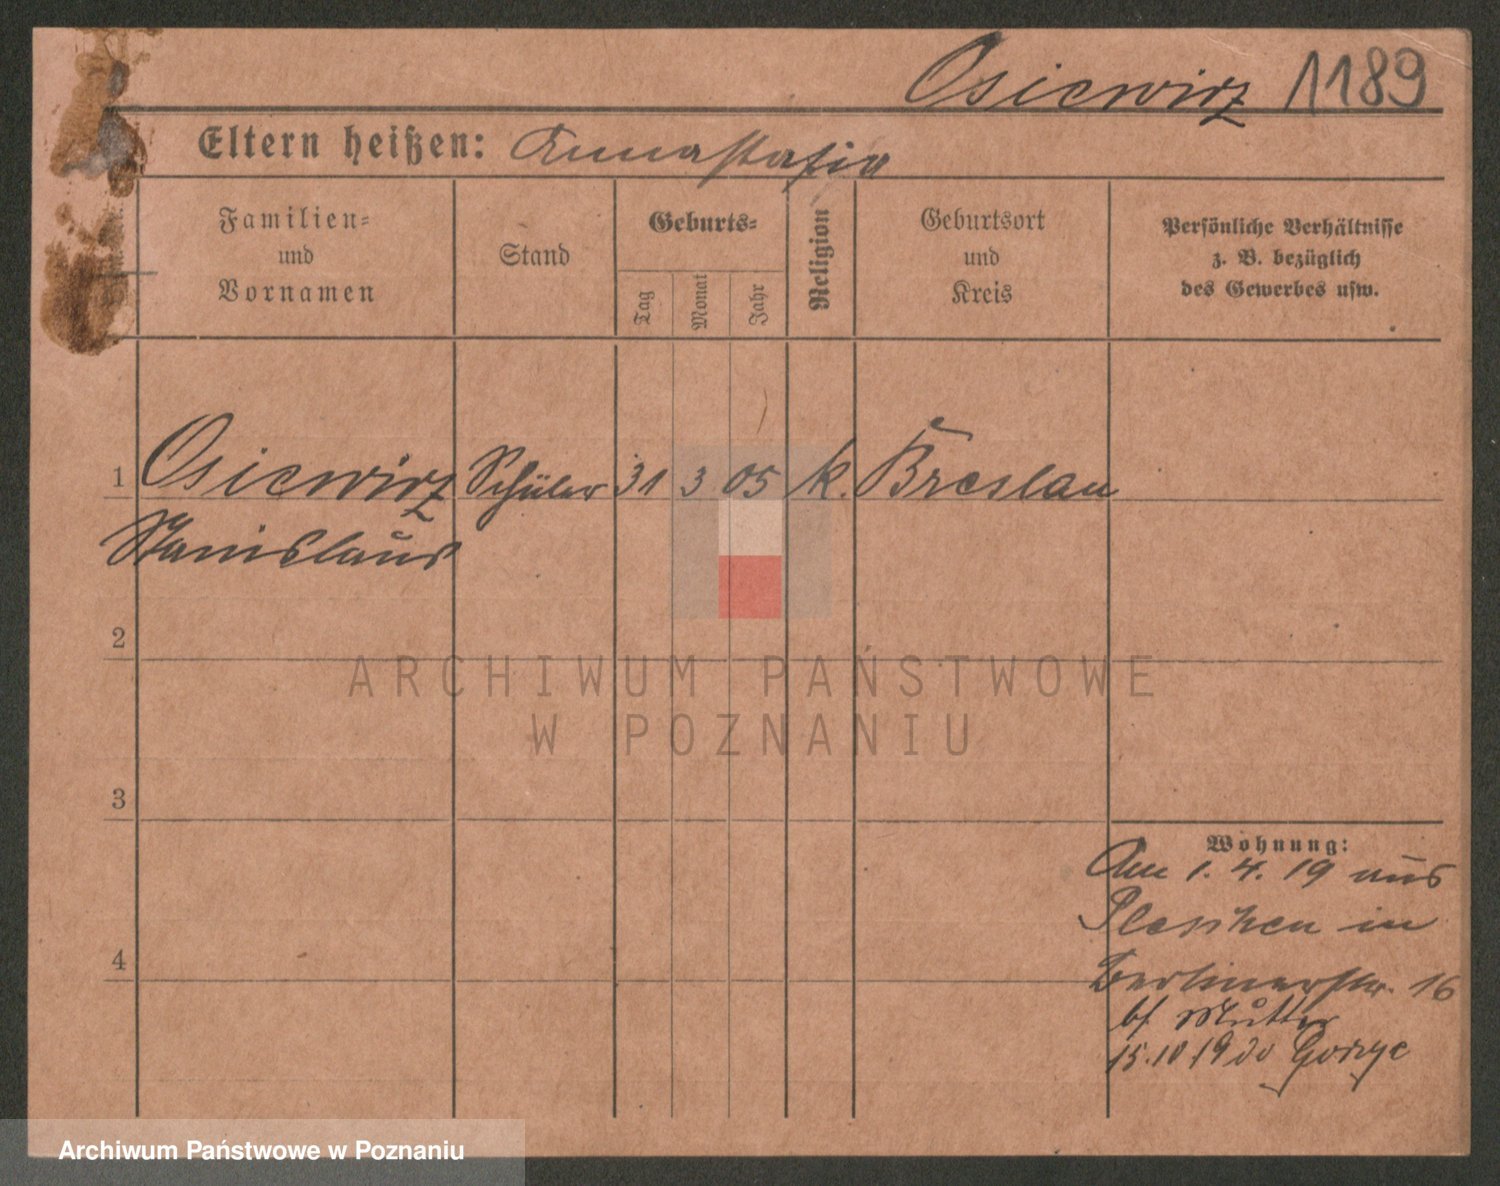 Osiewicz 1189
Eltern heißen: Annastasia
Familien-
und
Vornamen
Stand
Geburts-
Tag
Monat
Jahr
Religion
Geburtsort
und
Kreis
Persönliche Verhältnisse
z. B. bezüglich
des Gewerbes usw.
1 Osiewicz Schüler 31 3 05 k. Breslau
Stanislaus
2
ARCHIWUM PAŃSTWOWE
W POZNANIU
3
Wohnung:
Am 1. 4. 19 aus
Pleschen in
4
Berlinerstr. 16
bf Mutter
15.10 19
Archiwum Państwowe w Poznaniu